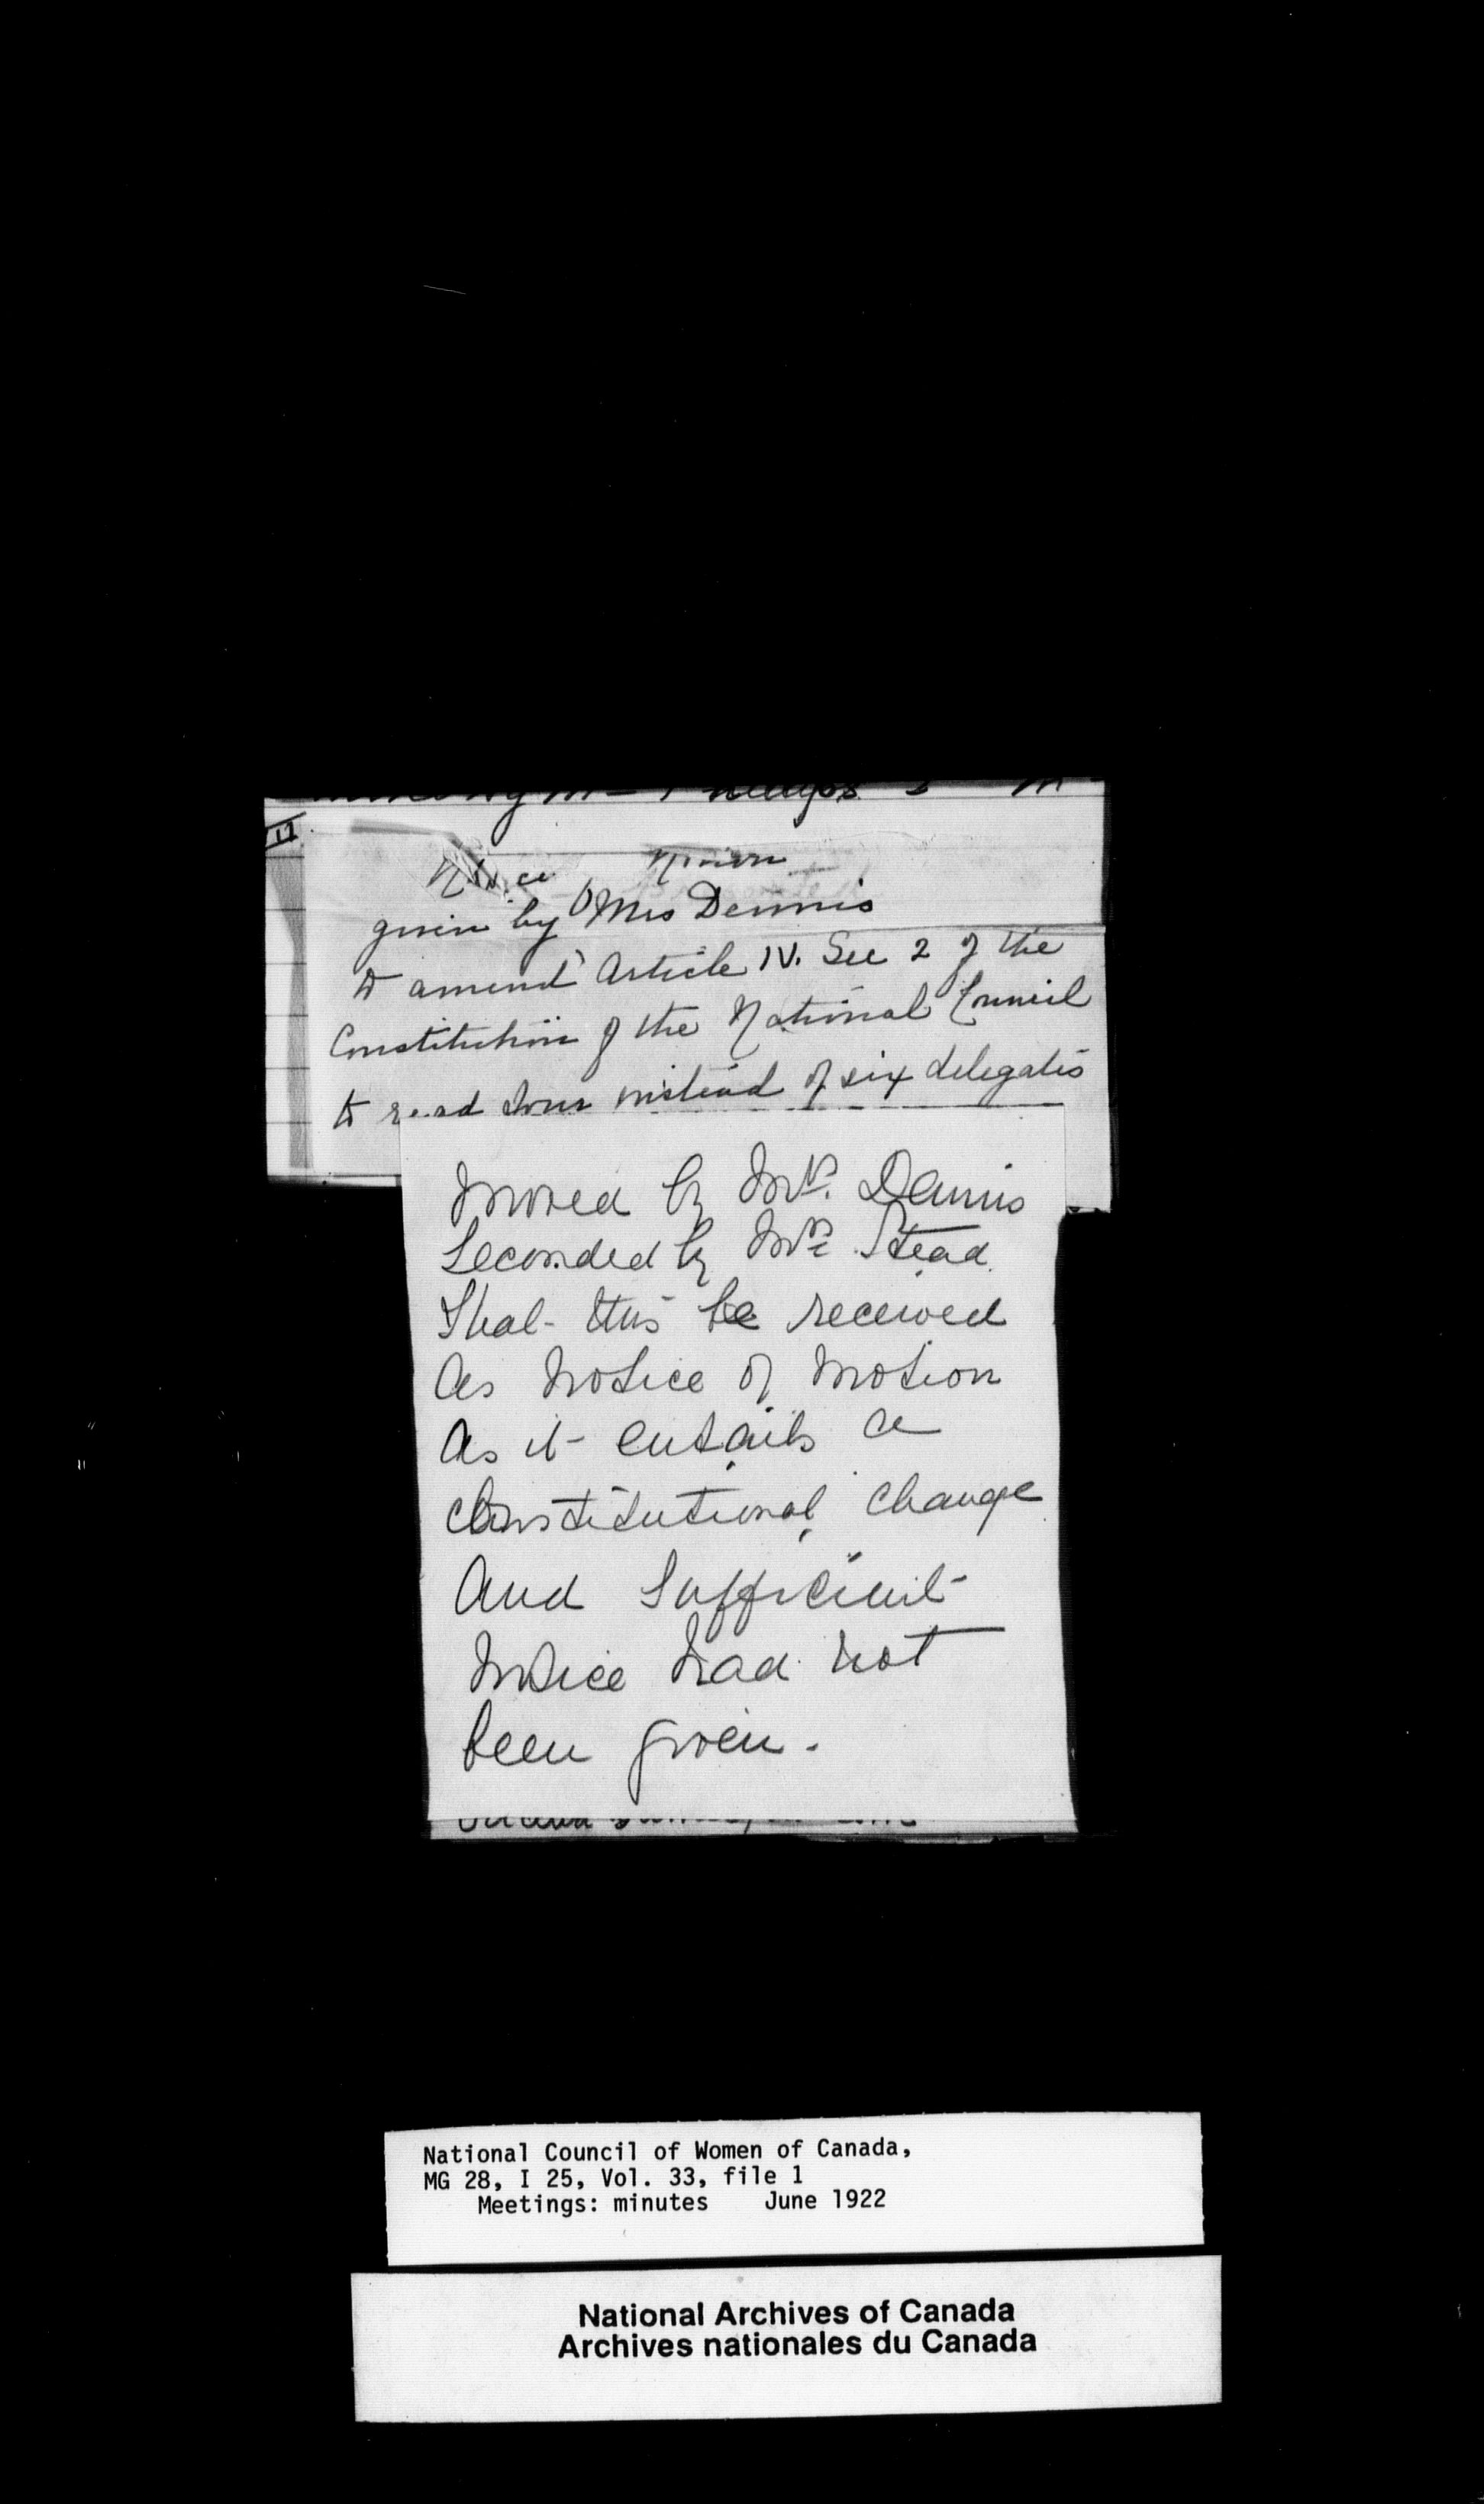 11
Notice of Motion
given by Mrs Dennis
to amend Article IV. Sec 2 of the
Constitution of the National Council
to read four instead of six delegates
Moved by Mrs. Dennis
Seconded by Mrs. Stead
That this be received
As Notice of Motion
As it entails a
Constitutional change
And sufficient
Notice had not
been given.
National Council of Women of Canada,
MG 28, I 25, Vol. 33, file 1
Meetings: minutes June 1922
National Archives of Canada
Archives nationales du Canada